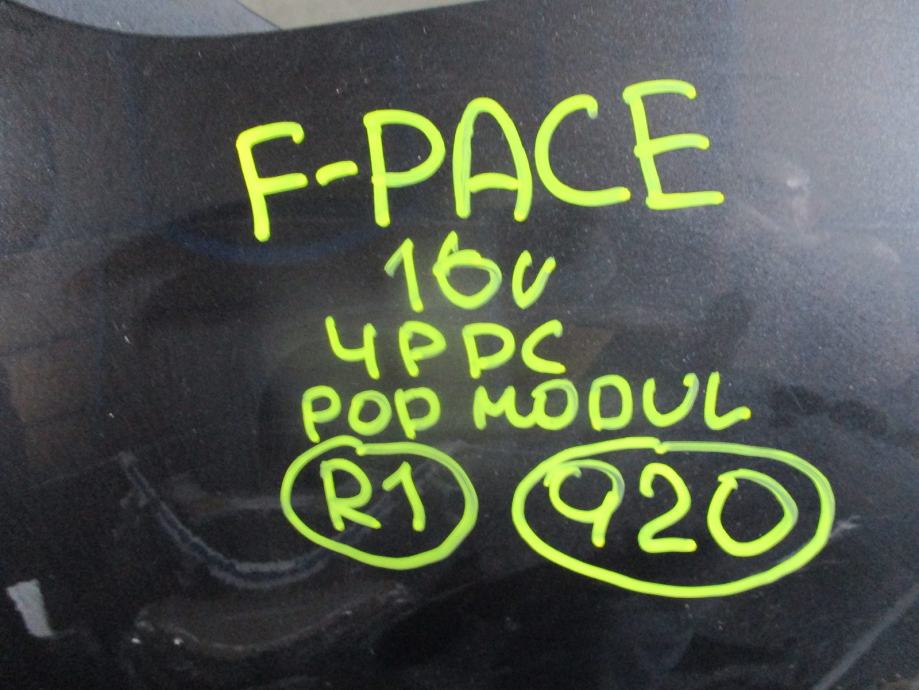 F-PACE
16V
4PDC
POD MODUL
R1 920